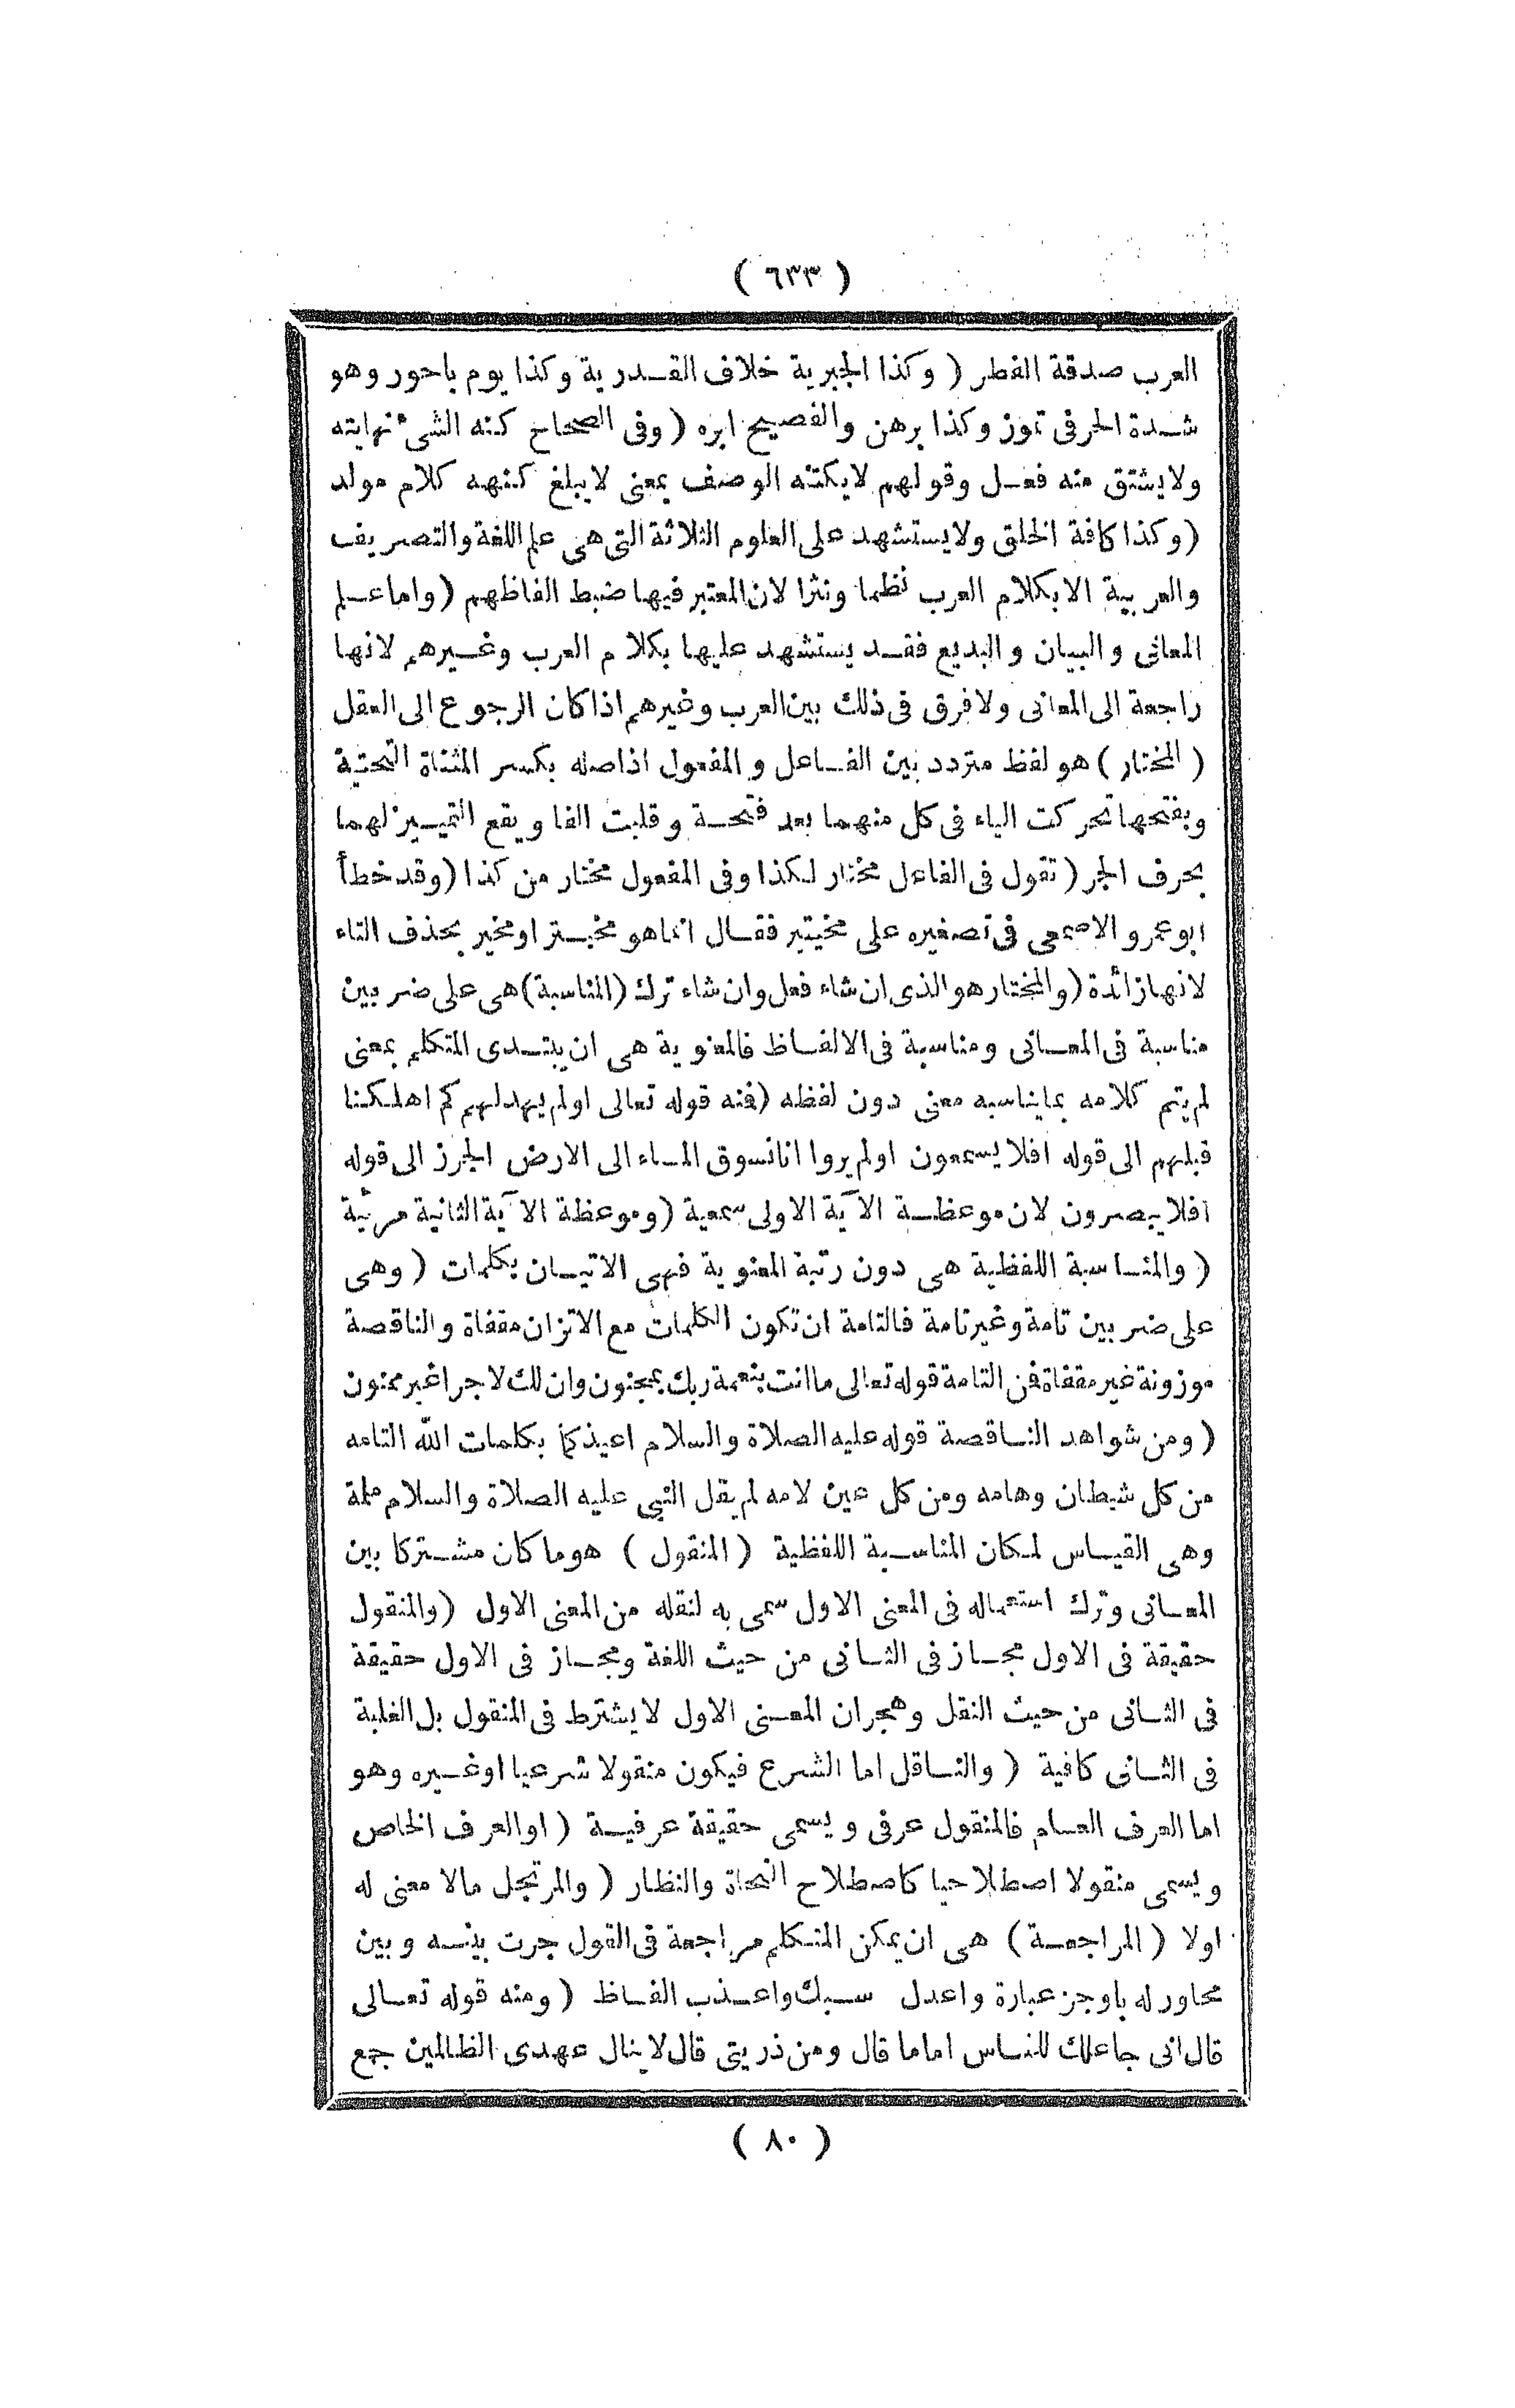 ( ٦٣٣ )
العرب صدقة الفطر ( وكذا الجبرية خلاف القدرية وكذا يوم باحور وهو
شدة الحر فى تموز وكذا برهن والفصيح ابره ( وفى الصحاح كنه الشئ نهايته
ولا يشتق منه فعل وقولهم لا يكتنه الوصف بمعنى لا يبلغ كنهه كلام مولد
( وكذا كافة الخلق ولا يستشهد على العلوم الثلاثة التى هى علم اللغة والتصريف
والعربية الا بكلام العرب نظما ونثرا لان المعتبر فيها ضبط الفاظهم ( واما علم
المعانى والبيان والبديع فقد يستشهد عليها بكلام العرب وغيرهم لانها
راجعة الى المعانى ولا فرق فى ذلك بين العرب وغيرهم اذا كان الرجوع الى العقل
( المختار ) هو لفظ متردد بين الفاعل والمفعول اذاصله بكسر المثناة التحتية
وبفتحها تحركت الياء فى كل منهما بعد فتحة وقلبت الفا ويقع التمييز لهما
بحرف الجر ( تقول فى الفاعل مختار لكذا وفى المفعول مختار من كذا ( وقد خطأ
ابو عمرو الاصمعى فى تصغيره على مخيتير فقال انما هو مخيتر او مخير بحذف التاء
لانها زائدة ( والمختار هو الذى ان شاء فعل وان شاء ترك ( المناسبة ) هى على ضربين
مناسبة فى المعانى ومناسبة فى الالفاظ فالمعنوية هى ان يبتدى المتكلم بمعنى
لم يتم كلامه بما يناسبه معنى دون لفظه ( فمنه قوله تعالى اولم يهد لهم كم اهلكنا
قبلهم الى قوله افلا يسمعون اولم يروا انا نسوق الماء الى الارض الجرز الى قوله
افلا يبصرون لان موعظة الآية الاولى سمعية ( وموعظة الآية الثانية مرئية
( والمناسبة اللفظية هى دون رتبة المعنوية فهى الاتيان بكلمات ( وهى
على ضربين تامة وغير تامة فالتامة ان تكون الكلمات مع الاتزان مقفاة والناقصة
موزونة غير مقفاة فمن التامة قوله تعالى ما انت بنعمة ربك بمجنون وان لك لاجرا غير ممنون
( ومن شواهد الناقصة قوله عليه الصلاة والسلام اعيذكما بكلمات الله التامه
من كل شيطان وهامه ومن كل عين لامه لم يقل النبى عليه الصلاة والسلام ملمة
وهى القياس لمكان المناسبة اللفظية ( المنقول ) هو ما كان مشتركا بين
المعانى وترك استعماله فى المعنى الاول سمى به لنقله من المعنى الاول ( والمنقول
حقيقة فى الاول مجاز فى الثانى من حيث اللغة ومجاز فى الاول حقيقة
فى الثانى من حيث النقل وهجران المعنى الاول لا يشترط فى المنقول بل الغلبة
فى الثانى كافية ( والناقل اما الشرع فيكون منقولا شرعيا او غيره وهو
اما العرف العام فالمنقول عرفى ويسمى حقيقة عرفية ( او العرف الخاص
ويسمى منقولا اصطلاحيا كاصطلاح النحاة والنظار ( والمرتجل مالا معنى له
اولا ( المراجعة ) هى ان يمكن المتكلم مراجعة فى القول جرت بينه وبين
محاور له باوجز عبارة واعدل سبك واعذب الفاظ ( ومنه قوله تعالى
قال انى جاعلك للناس اماما قال ومن ذريتى قال لا ينال عهدى الظالمين جمع
( ٨٠ )